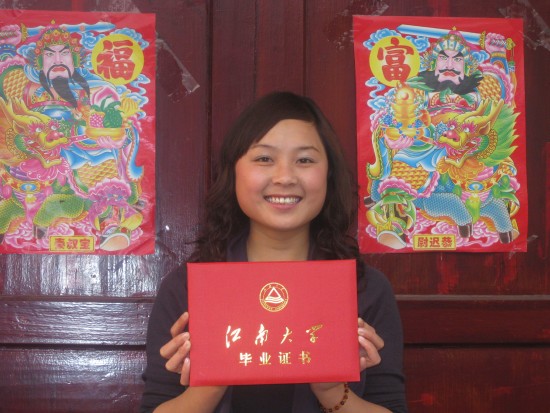 福
富
秦叔宝
尉迟恭
江南大学
毕业证书